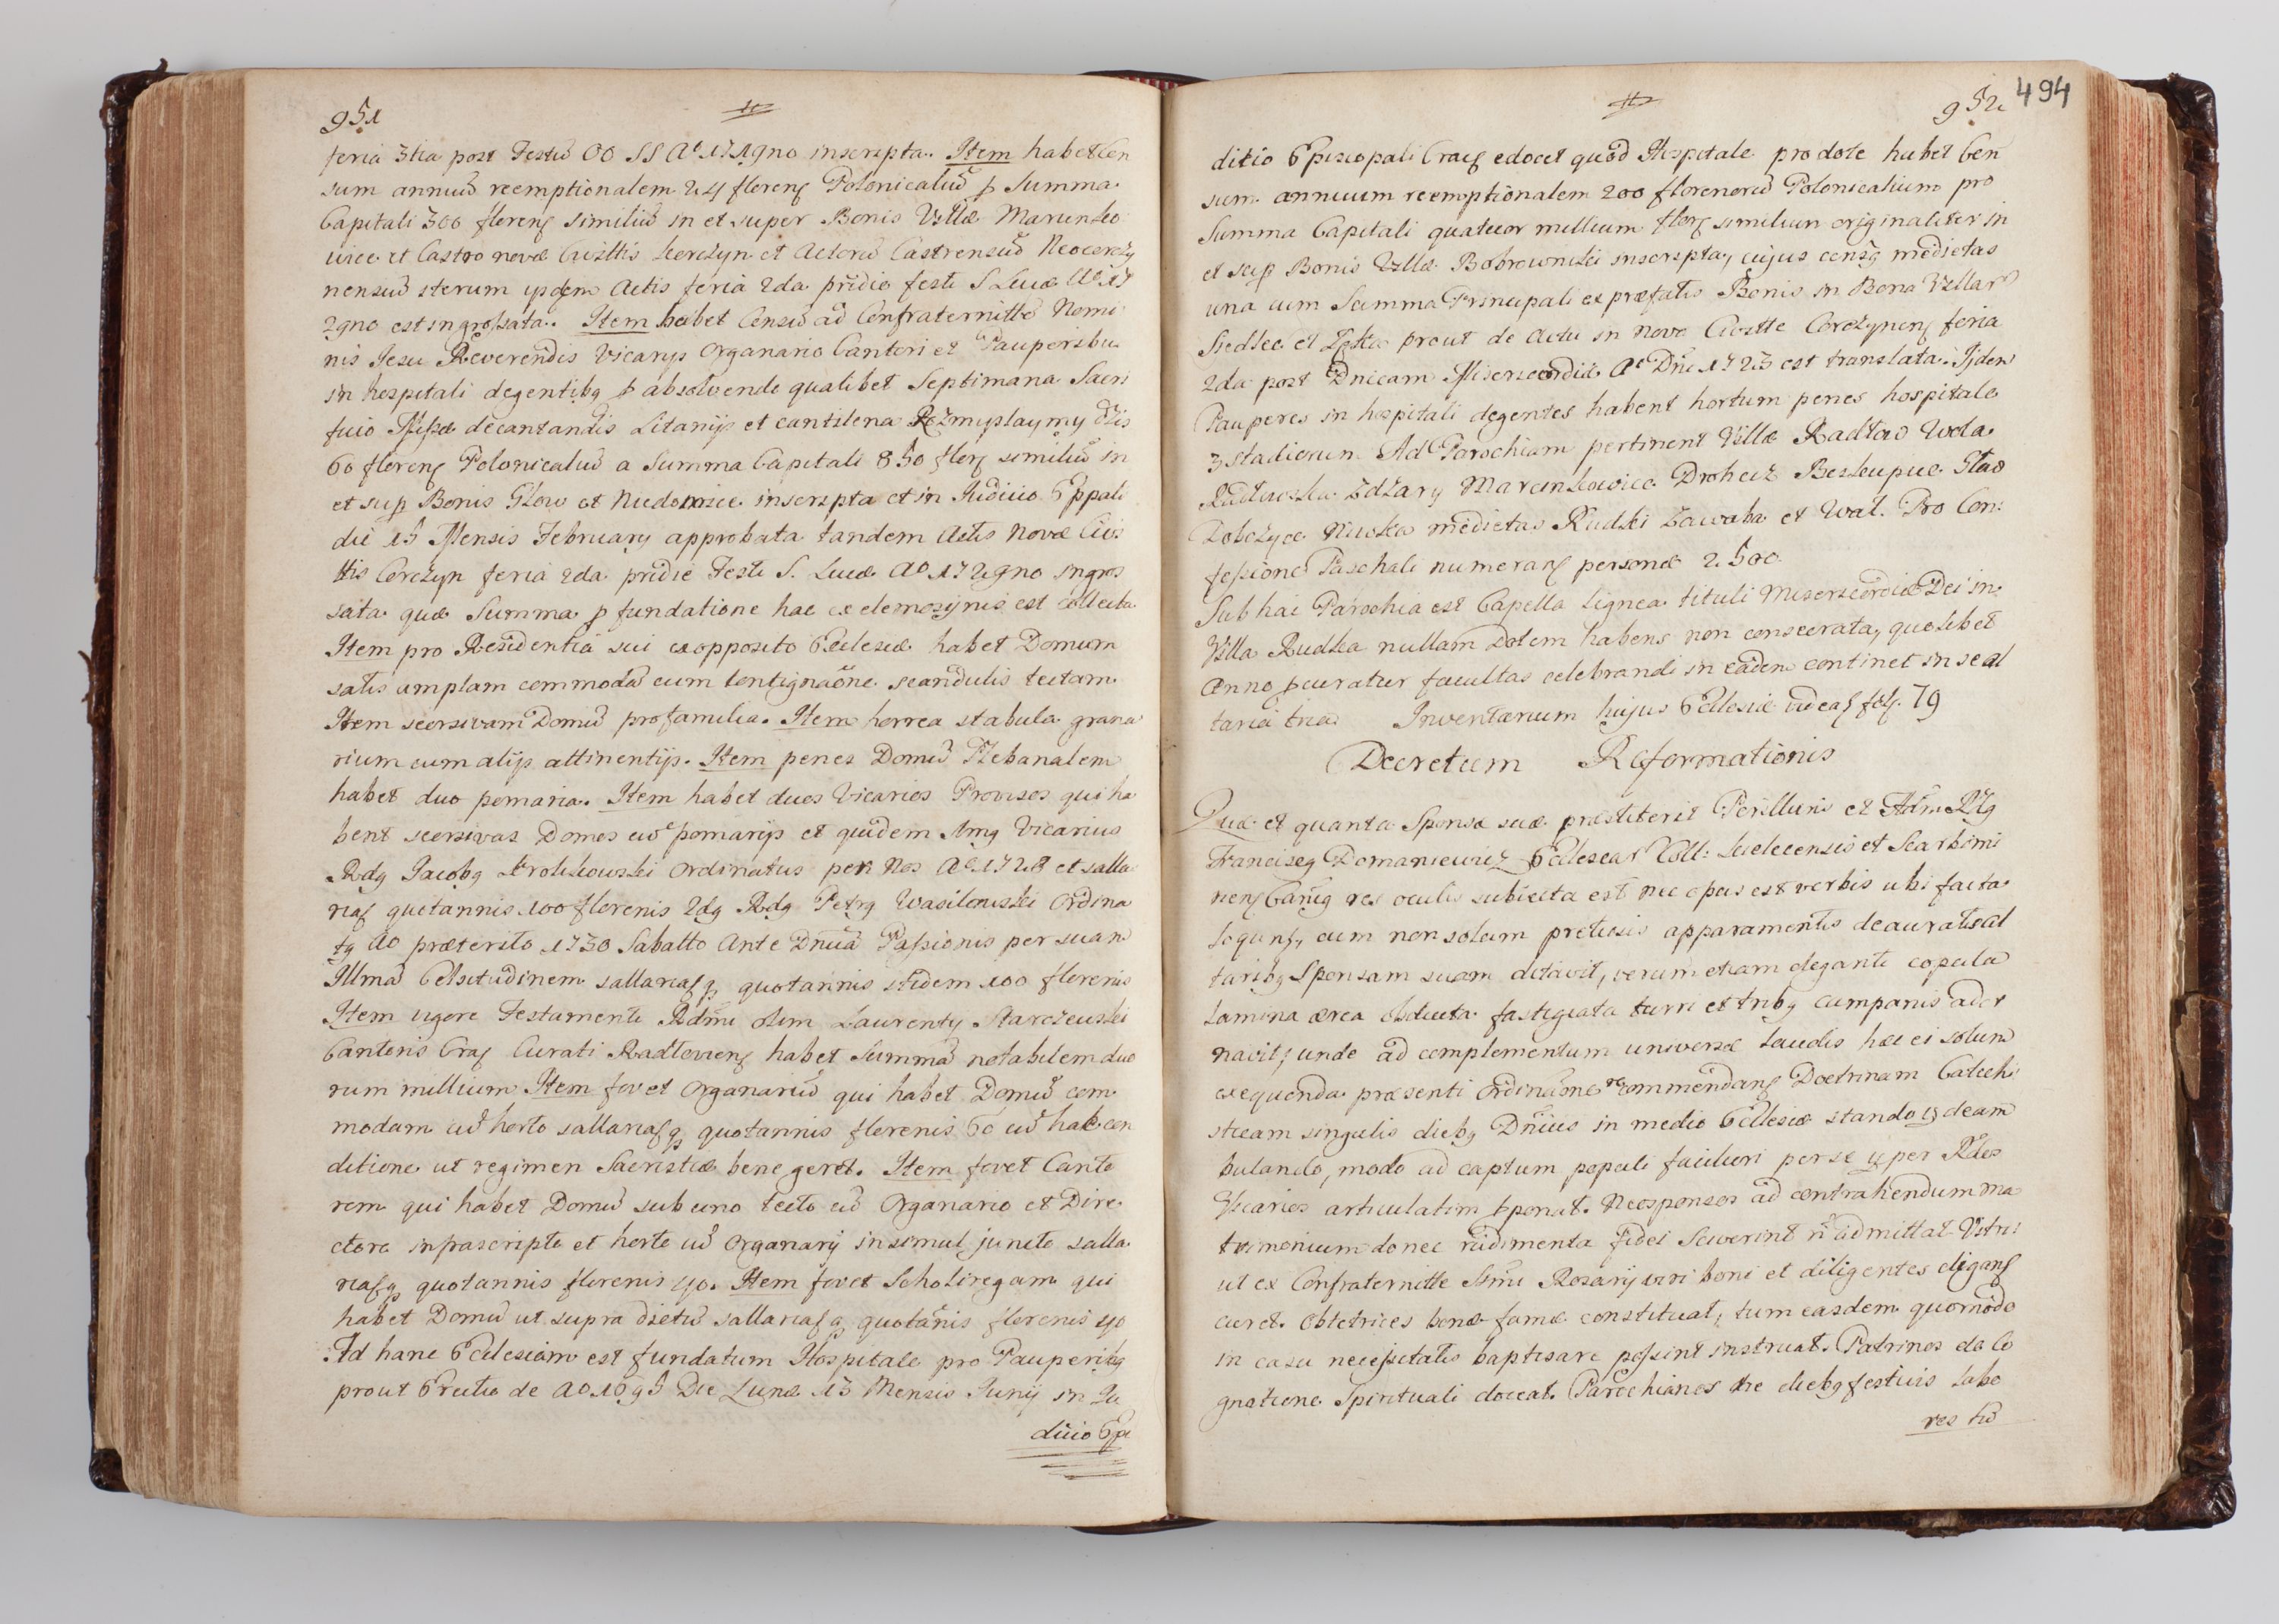 951
feria 3tia post Festũ OO SS Aº 1719no inscripta. Item habet Cen
sum annuũ reemptionalem 24 floren Polonicaliũ p Summa
Capitali 300 floren similiũ in et super Bonis Villæ Marcinko
wice et Castro novæ Civittis Korczyn et Actorũ Castrensiũ Neocorczy
nensiũ iterum ipsdem Actis feria 2da pridie festi S Lucæ Aº 17
29no est ingrossata. Item habet Censũ ad Confraternittẽ Nomi
nis Jesu Reverendis Vicarijs Organario Cantori et Pauperibus
in hospitali degentibg p absolvendo qualibet Septimana Sacri
ficio Missæ decantandis Litanijs et cantilena Rozmyslaymy dzis
60 floren Polonicaliũ a Summa Capitali 850 flor similiũ in
et sup Bonis Glow et Niedomice inscripta et in Judicio Eppali
die 15 Mensis February approbata tandem Actis Novæ Civi
ttis Corczyn feria 2da pridie Festi S. Lucæ Aº 1729no ingros
sata quæ Summa p fundatione hac ex elemozijnis est collecta
Item pro Residentia sui ex opposito Ecclesiæ habet Domum
satis amplam commodã cum contignaõne scandulis tectam
Item seorsivam Domũ pro familia. Item horrea stabula grana
rium cum alijs attinentijs. Item penes Domũ Plebanalem
habet duo pomaria. Item habet duos Vicarios Provisos qui ha
bent seorsivas Domos cũ pomarijs et quidem 1mg Vicarius
Rdg Jacobg Krolikowski Ordinatus per Nos Aº 1728 et salla
riat quotannis 100 florenis 2dg Rdg Petrg Wasilewski Ordina
tg Aº præterito 1730 Sabatto Ante Dnicã Passionis per suam
Illmã Celsitudinem sallariatg quotannis itidem 100 florenis
Item vigore Testamenti Rdmi olim Laurenty Starczewski
Cantoris Crac Curati Radlovien habet Summã notabilem duo
rum millium Item fovet Organariũ qui habet Domũ com
modam cũ horto sallariatg quotannis florenis 60 cũ hac con
ditione ut regimen Sacristiæ bene geret. Item fovet Canto
rem qui habet Domũ sub uno tecto cũ Organario et Dire
ctore infrascripto et horto cũ Organarij insimul juncto salla
riatg quotannis florenis 40. Item fovet Scholiregam qui
habet Domũ ut supra dictũ sallariatg quotañis florenis 40
Ad hanc Ecclesiam est fundatum Hospitale pro Pauperibg
prout Erectio de Aº 1695 Die Lunæ 13 Mensis Junij in Ju
dicio Epi
952 494
ditio Episcopali Crac edocet quod Hospitale pro dote habet Cen
sum annuum reemptionalem 200 florenorũ Polonicalium pro
Summa Capitali quatuor millium flor similium originaliter in
et sup Bonis Villæ Bobrowniki inscripta, cujus censg medietas
una cum Summa Principali ex præfatis Bonis in Bona Villarũ
Siedlec et Lęka prout de Actu in Nova Civitte Corczynen feria
2da post Dnicam Misericordiæ Aº Dni 1723 est translata. Ijdem
Pauperes in hospitali degentes habent hortum penes hospitale
3 Stadiorum Ad Parochiam pertinent Villæ Radlow Wola
Radlowska Zdżary Marcinkowice Drohcz Biskupice Glow
Dobczyce Niwka medietas Rudki Zawada et Wal. Pro Con:
fessione Paschali numeran personæ 2.500.
Sub hac Parochia est Capella lignea tituli Misericordiæ Dei in
Villa Rudka nullam dotem habens non consecrata, quolibet
Anno pcuratur facultas celebrandi in eadem continet in se al
taria tria Inventarium hujus Ecclesiæ videas fol. 79
Decretum Reformationis
Quæ et quanta Sponsæ suæ præstiterit Perillusris et Adm Rdg
Franciscg Domaniewicz Ecclesiar Coll: Kielecensis et Scarbimi
rien Canng res oculis subiecta est nec opus est verbis ubi facta
loqunt, cum non solum pretiosis apparamentis deauratis al
taribg Sponsam suam ditavit, verum etiam eleganti copula
Lamina ærea obducta fastigiata turri et tribg campanis ador
navit, unde ad complementum universæ laudis hæc ei solum
exequenda præsenti Ordinaõne recommendant Doctrinam Catechi
sticam singulis diebg Dñicis in medio Ecclesiæ stando vel deam
bulando, modo ad captum populi faciliori per se vel per Rdos
Vicarios articulatim pponat. Neosponsos ad contrahendum ma
trimonium donec rudimenta Fidei sciverint ñ admittat Vitri
ut ex Confraternitte Ssmi Rosarij viri boni et diligentes eligant
curet. Obtetrices bonæ famæ constituat, tum easdem quomodo
in casu necessitatis baptisare possint instruat. Patrinos de Co
gnatione Spirituali doceat. Parochianos ne diebg festivis labo
res tũ